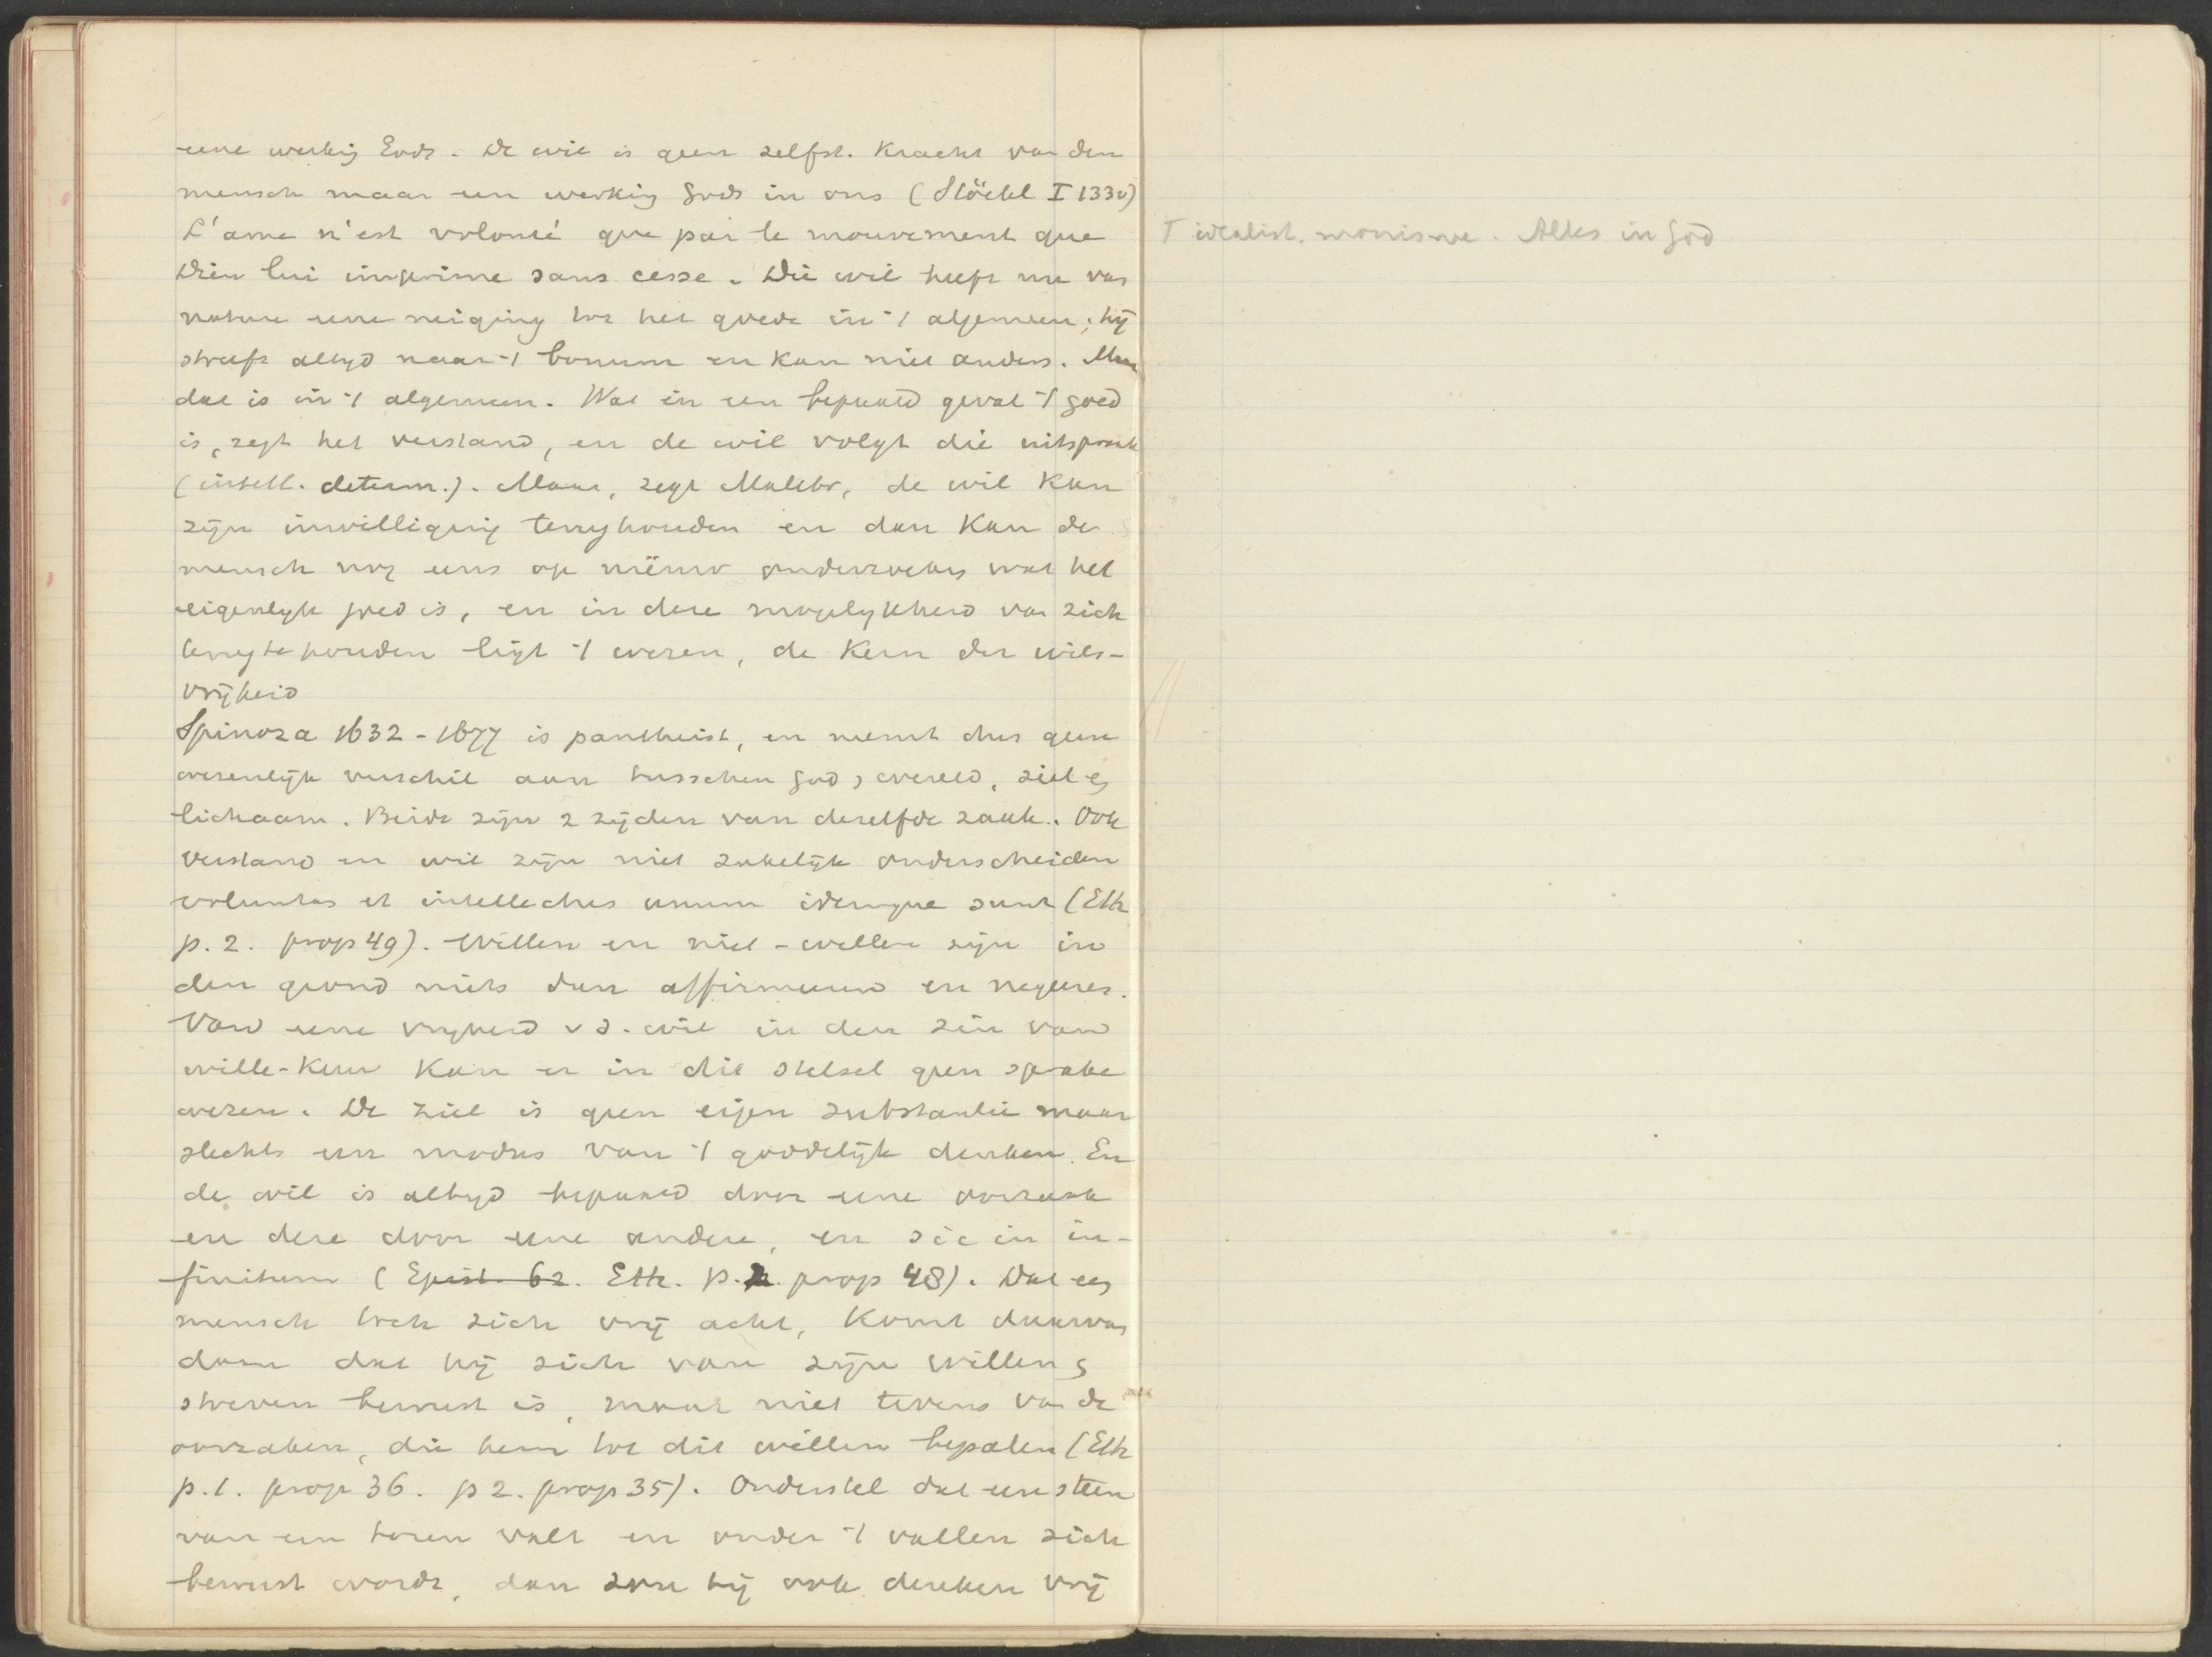 eene werking Gods. De wil is geen zelfst. kracht van den
mensch maar een werking Gods in ons (Stöckl I 1330)
L'ame n'est volonté que par le mouvement que
Dieu lui imprime sans cesse. Die wil heeft nu van
nature eene neiging tot het goede in 't algemeen; hij
streeft altyd naar 't bonum en kan niet anders. Maar
dat is in 't algemeen. Wat in een bepaald geval 't goed
is, zegt het verstand, en de wil volgt die uitspraak
(intell. determ.). Maar, zegt Malebr, de wil kan
zijn inwilliging terughouden en dan kan de
mensch nog eens op nieuw onderzoeken wat het
eigenlyk goed is, en in deze mogelykheid van zich
terug te houden ligt 't wezen, de kern der wils-
vrijheid
Spinoza 1632-1677 is pantheist, en neemt dus geen
wezenlijk verschil aan tusschen God, wereld, ziel en
lichaam. Beide zijn 2 zijden van dezelfde zaak. Ook
verstand en wil zijn niet zakelijk onderscheiden
voluntas et intellectus unum idemque sunt (Eth
p. 2. prop 49). Willen en niet-willen zijn in
den grond niets dan affirmeeren en negeeren.
Van eene vryheid v d. wil in den zin van
wille-keur kan er in dit stelsel geen sprake
wezen. De ziel is geen eigen substantie maar
slechts een modus van 't goddelijk denken. En
de wil is altyd bepaald door eene oorzaak
en deze door eene andere, en sic in in-
finitum (Epist. 62. Eth. p. 2. prop 48). Dat een
mensch toch zich vrij acht, komt daarvan
daan dat hij zich van zijn willen en
streven bewust is, maar niet tevens van de
oorzaken, die hem tot dit willen bepalen (Eth
p. 1. prop 36. p 2. prop 35). Onderstel dat een steen
van een toren valt en onder 't vallen zich
bewust wordt, dan zou hij ook denken vrij
T idealist. monisme. Alles in God